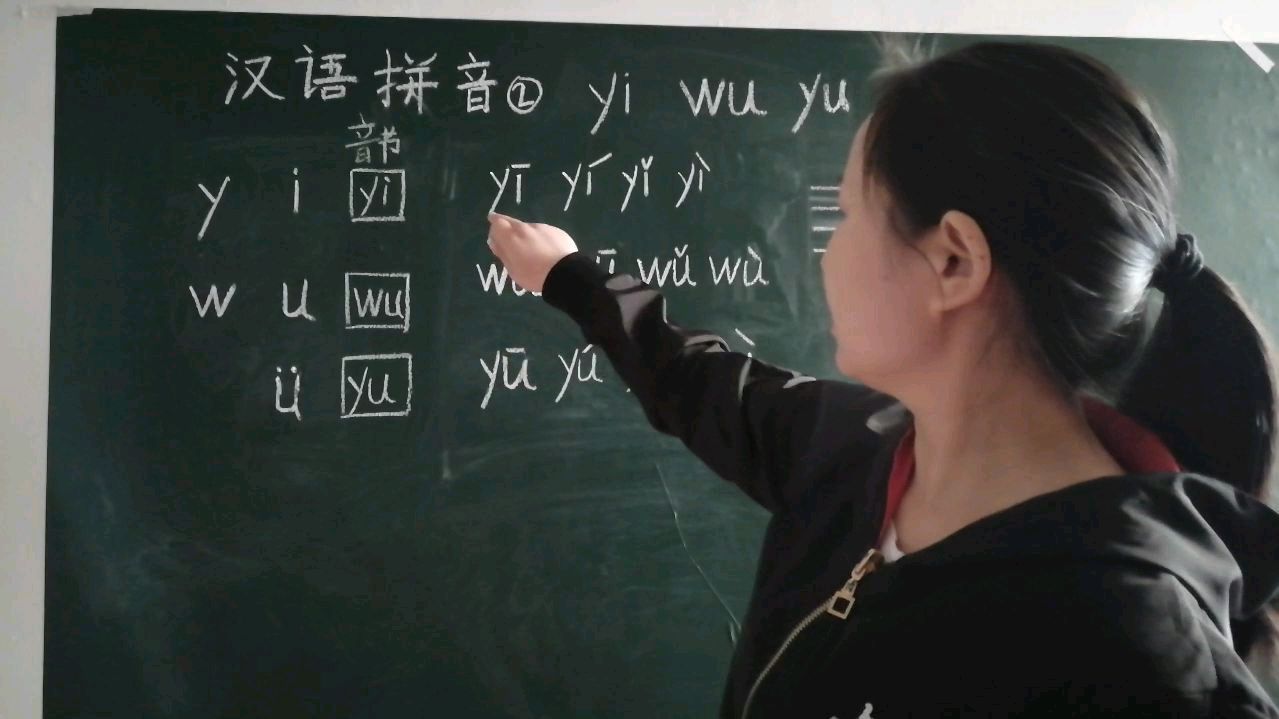 汉语拼音② yi wu yu
音节
y i yi yī yí yǐ yì
w u wu wǔ wù
ü yu yū yú